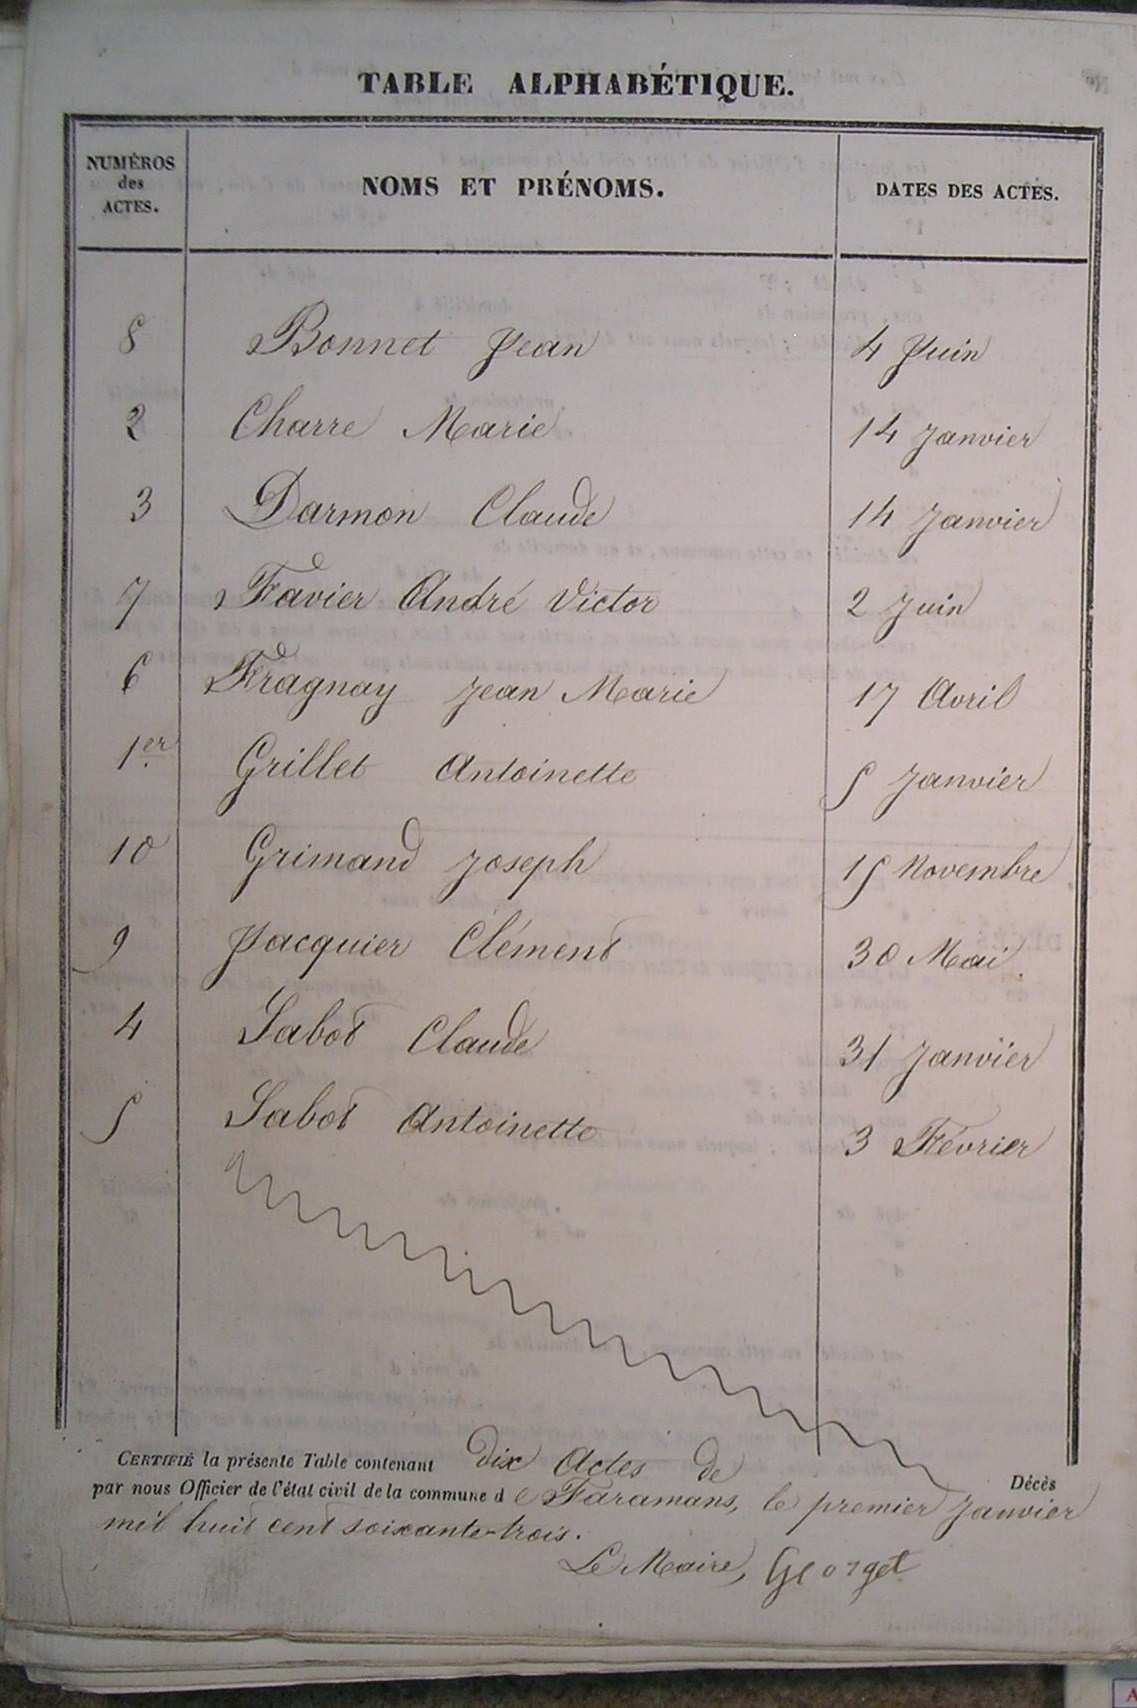 TABLE ALPHABÉTIQUE.
NUMÉROS des ACTES. NOMS ET PRÉNOMS. DATES DES ACTES.
8 Bonnet Jean 4 Juin
2 Charre Marie 14 Janvier
3 Darmon Claude 14 Janvier
7 Favier André Victor 2 Juin
6 Fragnay Jean Marie 17 Avril
1er Grillet Antoinette 5 Janvier
10 Grimand Joseph 15 Novembre
9 Jacquier Clément 30 Mai
4 Sabot Claude 31 Janvier
5 Sabot Antoinette 3 Février
CERTIFIÉ la présente Table contenant dix Actes de Décès
par nous Officier de l'état civil de la commune de Faramans, le premier Janvier
mil huit cent soixante-trois.
Le Maire, Georget